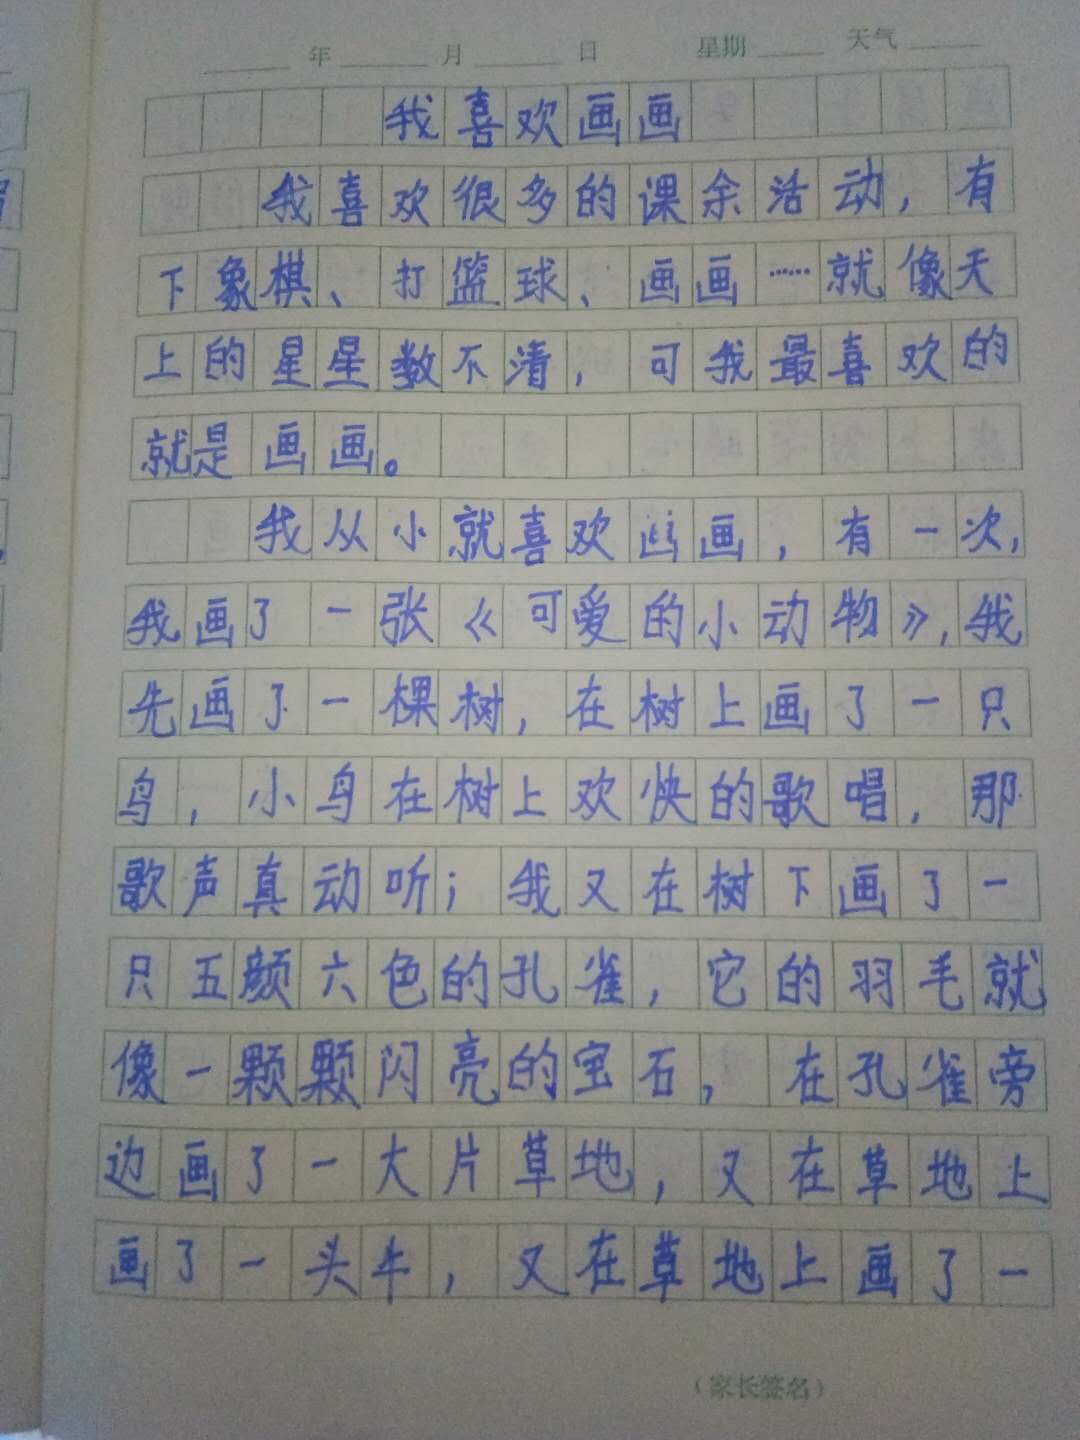 年 月 日 星期 天气
我喜欢画画
我喜欢很多的课余活动，有
下象棋、打篮球、画画……就像天
上的星星数不清，可我最喜欢的
就是画画。
我从小就喜欢画画，有一次，
我画了一张《可爱的小动物》，我
先画了一棵树，在树上画了一只
鸟，小鸟在树上欢快的歌唱，那
歌声真动听；我又在树下画了一
只五颜六色的孔雀，它的羽毛就
像一颗颗闪亮的宝石，在孔雀旁
边画了一大片草地，又在草地上
画了一头牛，又在草地上画了一
（家长签名）